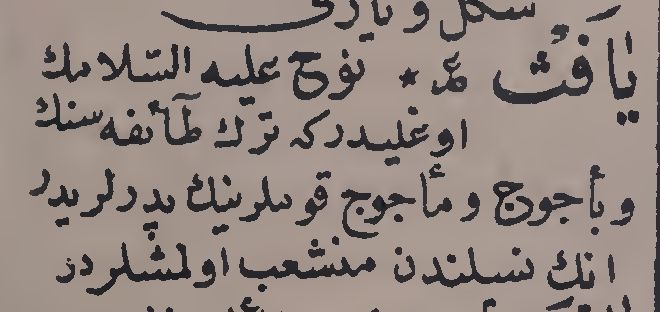 شكل و يازى
يافث عم ٭ نوح عليه السلامك
اوغليدركه ترك طآئفه سنك
و يأجوج و مأجوج قوملرينك پدرلريدر
انك نسلندن منشعب اولمشلردر